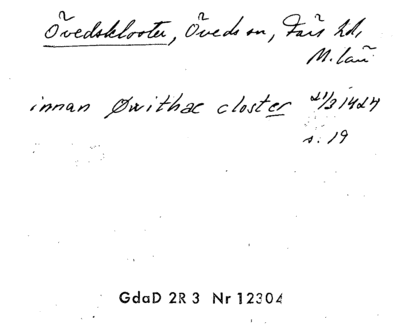 Övedskloster, Öveds sn, Färs hd,
M. län
innan Øwithæ closter 21/3 1424
s. 19
GdaD 2R3 Nr 12304